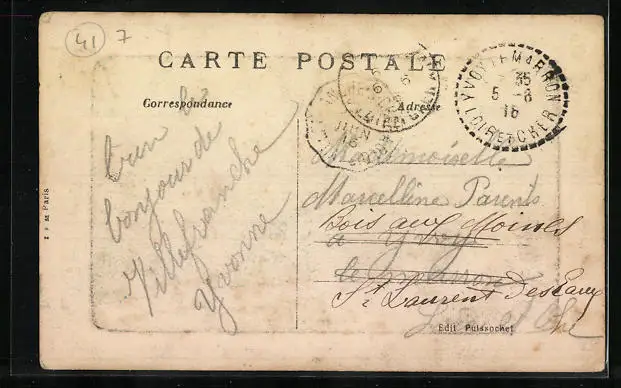 41 7
CARTE POSTALE
Correspondance
Adresse
YVOY-LE-MARRON
35
5 - 6
16
LOIR-ET-CHER
JUIN
16
un
bonjour de
Villefranche
Yvonne
Mademoiselle
Marcelline Parents
Bois aux Moines
a Yvoy
le marron
St Laurent Des Eaux
Loir et Cher
Edit Puissochet
Paris